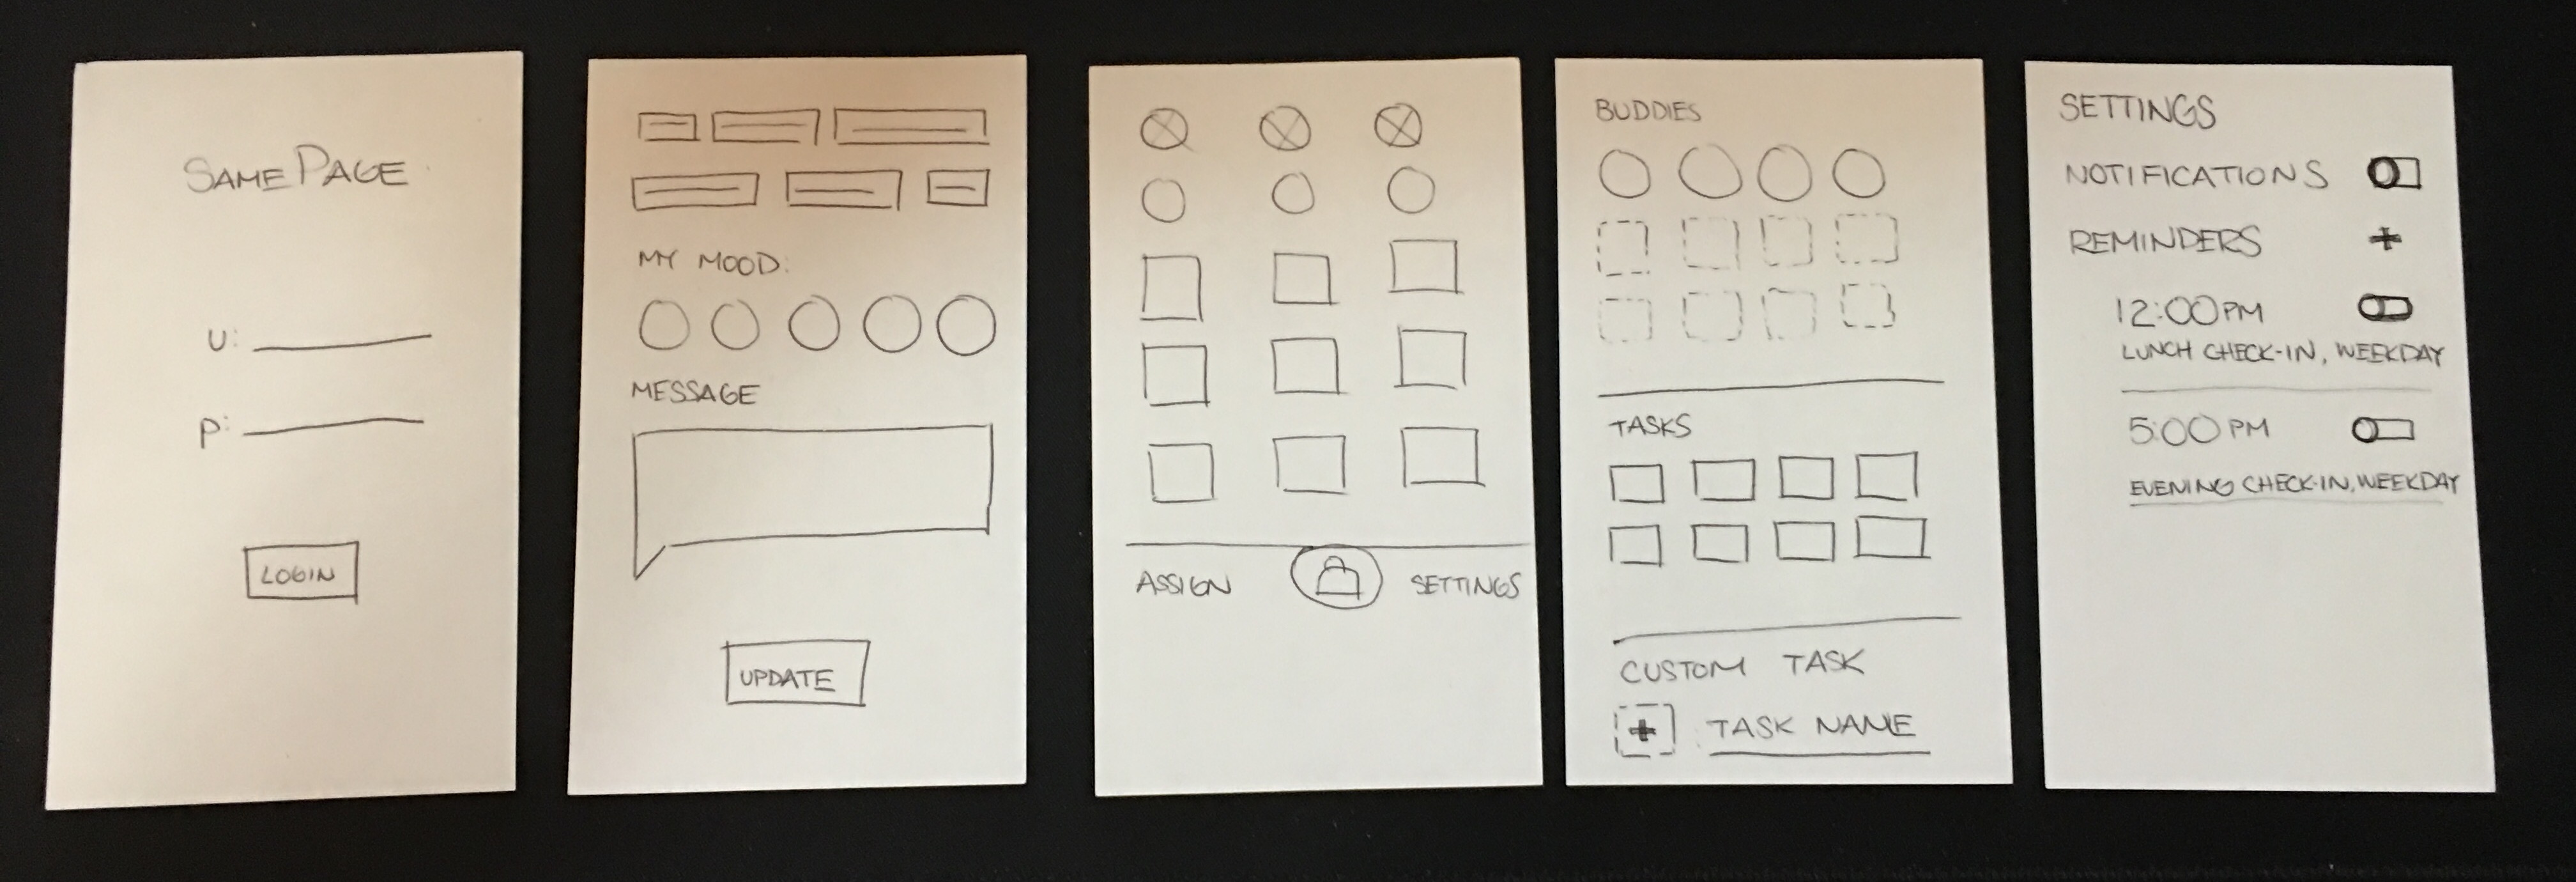 SAMEPAGE
U:
P:
LOGIN
MY MOOD:
MESSAGE
UPDATE
ASSIGN
SETTINGS
BUDDIES
TASKS
CUSTOM TASK
+ TASK NAME
SETTINGS
NOTIFICATIONS
REMINDERS +
12:00PM
LUNCH CHECK-IN, WEEKDAY
5:00 PM
EVENING CHECK-IN, WEEKDAY